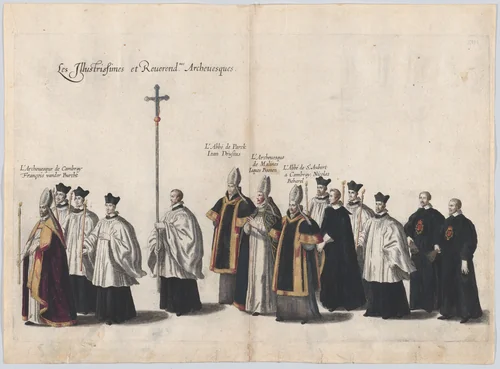 Les Illustrissimes et Reuerend.mes Archeuesques.
L'Archeuesque de Cambray
François vander Burcht
L'Abbé de Parck
Iean Druſius
L'Archeuesque
de Malines
Iaques Boonen
L'Abbé de S. Aubert
a Cambray Nicolas